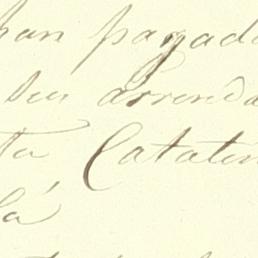 han pagado
su arrenda
ta Catalin
lá